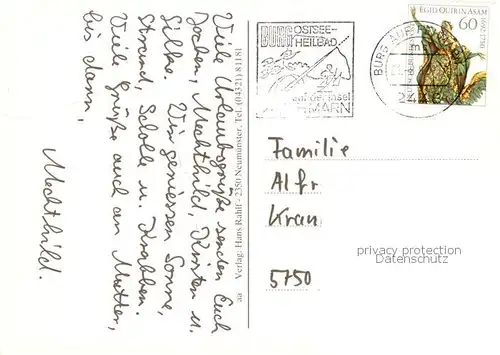 Viele Urlaubsgrüße senden Euch
Jochen, Mechthild, Kirsten u.
Silke. Wir geniessen Sonne,
Strand, Scholle u. Krabben.
Viele Grüße auch an Mutter,
bis dann,
Mechthild.
aa Verlag: Hans Rahlf - 2350 Neumünster, Tel. (04321) 81181
BURG OSTSEE-
HEILBAD
auf der Insel
EGID QUIRIN ASAM
1692-1750
60
BURG AUF
Familie
Alfr
Kran
5750
privacy protection
Datenschutz